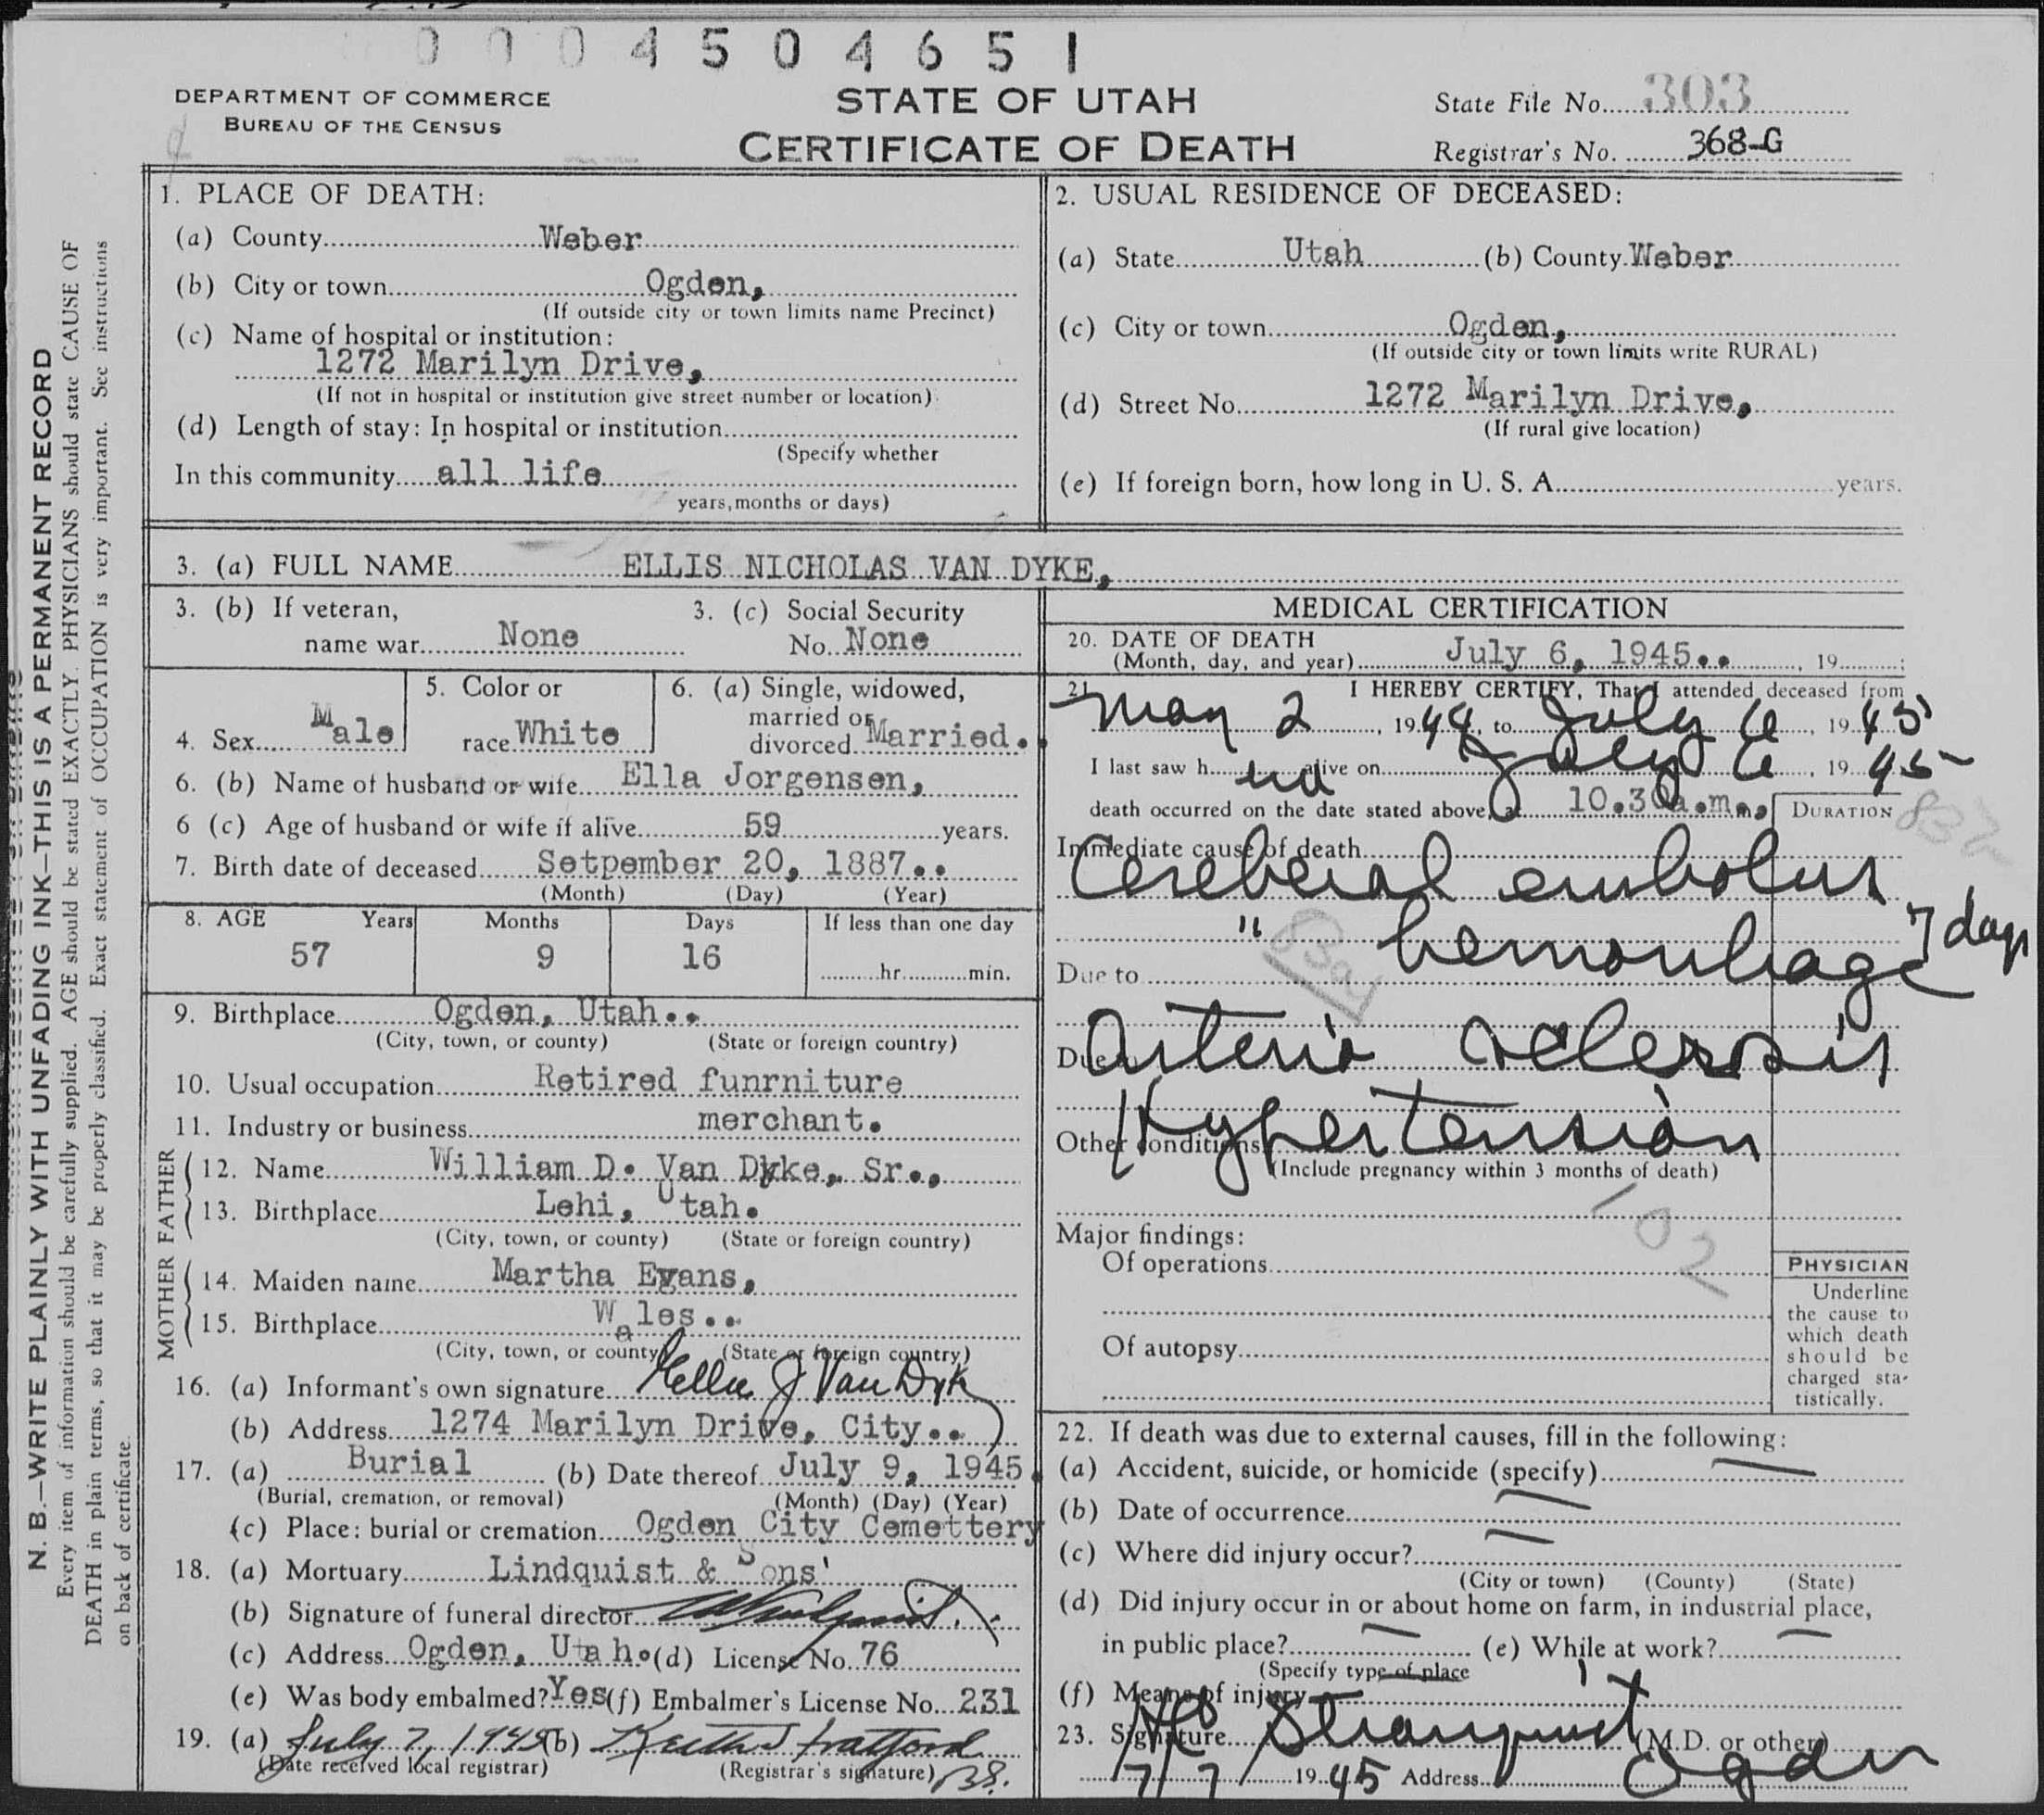 0004504651
DEPARTMENT OF COMMERCE
BUREAU OF THE CENSUS
STATE OF UTAH
CERTIFICATE OF DEATH
State File No. 303
Registrar's No. 368-G
N. B.—WRITE PLAINLY WITH UNFADING INK—THIS IS A PERMANENT RECORD
Every item of information should be carefully supplied. AGE should be stated EXACTLY. PHYSICIANS should state CAUSE OF
DEATH in plain terms, so that it may be properly classified. Exact statement of OCCUPATION is very important. See instructions
on back of certificate.
1. PLACE OF DEATH:
(a) County Weber
(b) City or town Ogden,
(If outside city or town limits name Precinct)
(c) Name of hospital or institution:
1272 Marilyn Drive,
(If not in hospital or institution give street number or location)
(d) Length of stay: In hospital or institution
(Specify whether
In this community all life
years, months or days)
2. USUAL RESIDENCE OF DECEASED:
(a) State Utah (b) County Weber
(c) City or town Ogden,
(If outside city or town limits write RURAL)
(d) Street No. 1272 Marilyn Drive,
(If rural give location)
(e) If foreign born, how long in U. S. A. years.
3. (a) FULL NAME ELLIS NICHOLAS VAN DYKE,
3. (b) If veteran,
name war None
3. (c) Social Security
No. None
4. Sex Male
5. Color or
race White
6. (a) Single, widowed,
married or
divorced Married.
6. (b) Name of husband or wife Ella Jorgensen,
6 (c) Age of husband or wife if alive 59 years.
7. Birth date of deceased Setpember 20, 1887..
(Month) (Day) (Year)
8. AGE Years Months Days If less than one day
57 9 16 hr. min.
9. Birthplace Ogden, Utah..
(City, town, or county) (State or foreign country)
10. Usual occupation Retired funrniture
11. Industry or business merchant.
FATHER
12. Name William D. Van Dyke, Sr.,
13. Birthplace Lehi, Utah.
(City, town, or county) (State or foreign country)
MOTHER
14. Maiden name Martha Evans,
15. Birthplace Wales..
(City, town, or county) (State or foreign country)
16. (a) Informant's own signature Ella J Van Dyk
(b) Address 1274 Marilyn Drive, City..
17. (a) Burial (b) Date thereof July 9, 1945.
(Burial, cremation, or removal) (Month) (Day) (Year)
(c) Place: burial or cremation Ogden City Cemettery
18. (a) Mortuary Lindquist & Sons'
(b) Signature of funeral director
(c) Address Ogden, Utah. (d) License No. 76
(e) Was body embalmed? Yes (f) Embalmer's License No. 231
19. (a) July 7, 1945 (b) Keith Stratford
(Date received local registrar) (Registrar's signature) BS.
MEDICAL CERTIFICATION
20. DATE OF DEATH
(Month, day, and year) July 6, 1945.. , 19 ;
21. I HEREBY CERTIFY, That I attended deceased from
May 2 , 1944 to July 6 , 1945
I last saw h alive on July 6 , 1945
death occurred on the date stated above, at 10.30a.m., DURATION
832
Immediate cause of death
Cerebral embolus
" hemorrhage 7 days
Due to
83a
Due to Arterio sclerosis
Hypertension
Other conditions
(Include pregnancy within 3 months of death)
102
Major findings:
Of operations
Of autopsy
PHYSICIAN
Underline
the cause to
which death
should be
charged sta-
tistically.
22. If death was due to external causes, fill in the following:
(a) Accident, suicide, or homicide (specify)
(b) Date of occurrence
(c) Where did injury occur?
(City or town) (County) (State)
(d) Did injury occur in or about home on farm, in industrial place,
in public place? (e) While at work?
(Specify type of place
(f) Means of injury
23. Signature Stranquist (M.D. or other)
7/7/ 1945 Address Ogden